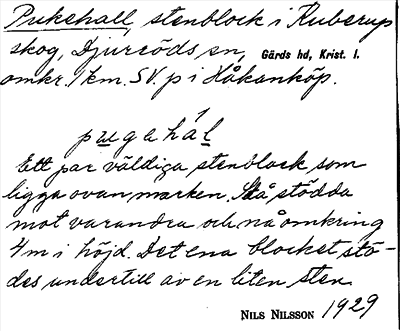 Pukehall, stenblock i Ruberup
skog, Djurröds sn, Gärds hd, Krist. l.
omkr. 1 km. SV. p i Håkanköp.
pugahál
Ett par väldiga stenblock som
ligga ovan marken. Stå stödda
mot varandra och nå omkring
4 m i höjd. Det ena blocket stö-
des undertill av en liten sten
NILS NILSSON 1929